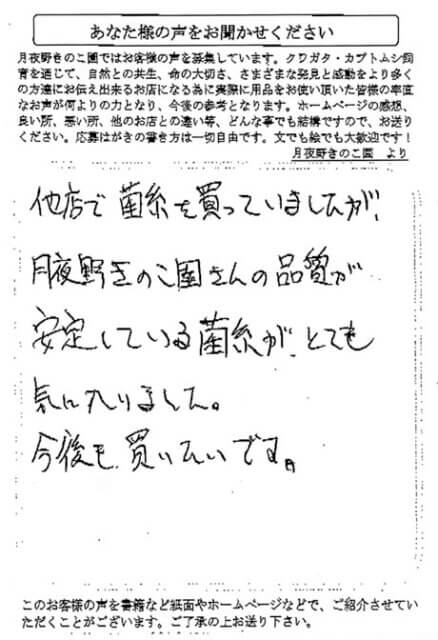 あなた様の声をお聞かせください
月夜野きのこ園ではお客様の声を募集しています。クワガタ・カブトムシ飼
育を通じて、自然との共生、命の大切さ、さまざまな発見と感動をより多く
の方達にお伝え出来るお店になる為に実際に用品をお使い頂いた皆様の率直
なお声が何よりの力となり、今後の参考となります。ホームページの感想、
良い所、悪い所、他のお店との違い等、どんな事でも結構ですので、お送り
ください。応募はがきの書き方は一切自由です。文でも絵でも大歓迎です！
月夜野きのこ園　より
他店で菌糸を買っていましたが、
月夜野きのこ園さんの品質が
安定している菌糸が、とても
気に入りました。
今後も、買いたいです。
このお客様の声を書籍など紙面やホームページなどで、ご紹介させてい
ただくことがございます。ご了承の上お送り下さい。